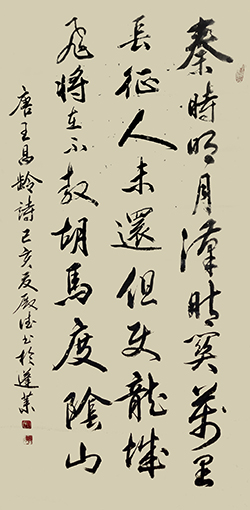 秦時明月漢時關萬里
長征人未還但使龍城
飛將在不教胡馬度陰山
唐王昌齡詩己亥夏殿佳書於蓬萊